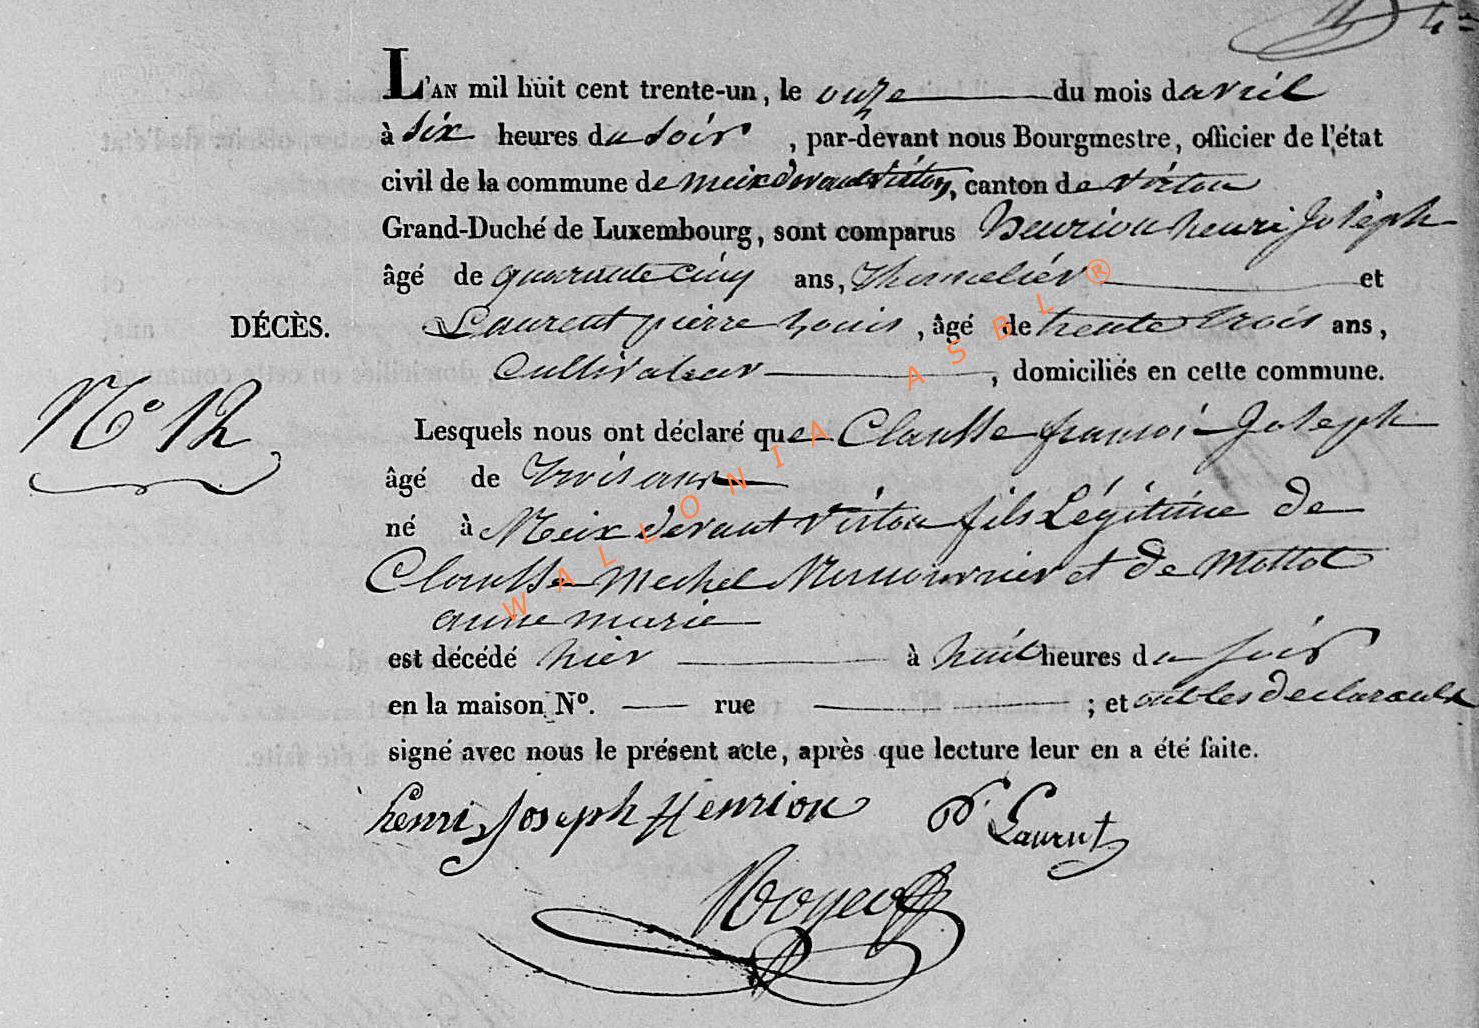 L'AN mil huit cent trente-un, le onze du mois davril
à six heures du soir, par-devant nous Bourgmestre, officier de l'état
civil de la commune de meix devant Virton, canton de Virton,
Grand-Duché de Luxembourg, sont comparus henrion henri Joseph
âgé de quarante cinq ans, et
DÉCÈS. Laurent pierre Louis, âgé de trente trois ans,
Cultivateur, domiciliés en cette commune.
N° 12 Lesquels nous ont déclaré que Clausse françoi Joseph
âgé de trois ans
né à Meix devant Virton fils Légitime de
Clausse Mechel et de Mottot
anne marie
est décédé hier à huit heures du soir
en la maison N°. rue ; et ont les declarants
signé avec nous le présent acte, après que lecture leur en a été faite.
henri Joseph Henrion P. Laurent
WALLONIA ASBL ®